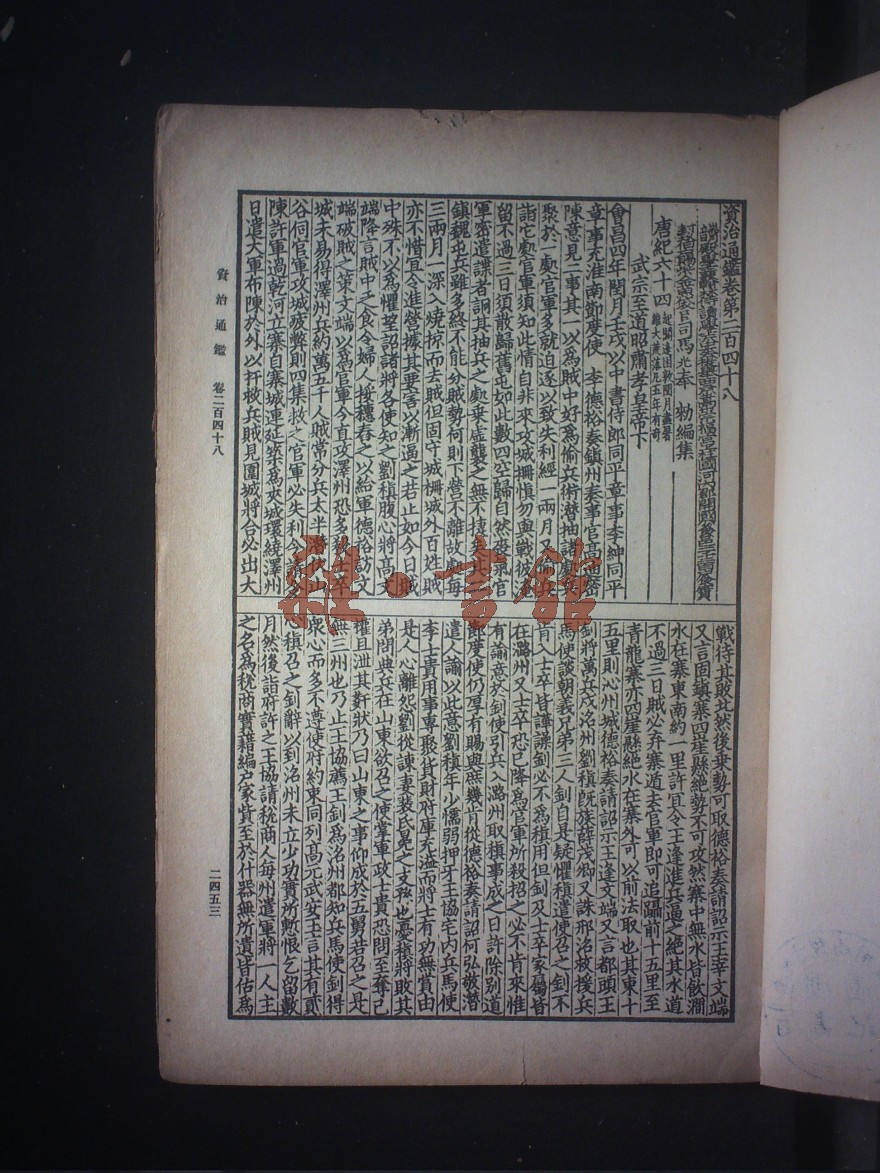 資治通鑑卷第二百四十八
勑編集
唐紀六十四
武宗至道昭肅孝皇帝下
會昌四年閏月壬戌以中書侍郎同平章事李紳同平
章事充淮南節度使 李德裕奏鎮州奏事官高迪密
陳意見二事其一以為賊中好為偷兵術潛抽諸處兵
聚於一處官軍多就迫逐以致失利經一兩月又偷兵
詣它處官軍須知此情自非來攻城柵慎勿與戰彼淹
留不過三日須散歸舊屯如此數四空歸自然喪氣官
軍密遣諜者詗其抽兵之處乘虛襲之無不捷矣其二
鎮魏屯兵雖多終不能分賊勢何則下營不離故處每
三兩月一深入燒掠而去賊但固守城柵城外百姓賊
亦不惜宜令進營據其要害以漸逼之若止如今日賊
中殊不以為懼望詔諸將各使知之劉稹腹心將高文
端降言賊中乏食令婦人挼穗舂之以給軍德裕訪文
端破賊之策文端以為官軍今直攻澤州恐多殺士卒
城未易得澤州兵約萬五千人賊常分兵太半潛伏山
谷伺官軍攻城疲弊則四集救之官軍必失利今請令
陳許軍過乾河立寨自寨城連延築為夾城環繞澤州
日遣大軍布陳於外以扞救兵賊見圍城將合必出大
戰待其敗北然後乘勢可取德裕奏請詔示王宰文端
又言固鎮寨四崖懸絕勢不可攻然寨中無水皆飲澗
水在寨東南約一里許宜令王逢進兵逼之絕其水道
不過三日賊必弃寨遁去官軍即可追躡前十五里至
青龍寨亦四崖懸絕水在寨外可以前法取也其東十
五里則沁州城德裕奏請詔示王逢文端又言都頭王
釗將萬兵戍洺州劉稹既族薛茂卿又誅邢洺救援兵
馬使談朝義兄弟三人釗自是疑懼稹遣使召之釗不
肯入士卒皆譁譟釗必不為稹用但釗及士卒家屬皆
在潞州又士卒恐已降為官軍所殺招之必不肯來惟
有諭意於釗使引兵入潞州取稹事成之日許除別道
節度使仍厚有賜與庶幾肯從德裕奏請詔何弘敬潛
遣人諭以此意劉稹年少懦弱押牙王協宅內兵馬使
李士貴用事專聚貨財府庫充溢而將士有功無賞由
是人心離怨劉從諫妻裴氏冕之支孫也憂稹將敗其
弟問典兵在山東欲召之使掌軍政士貴恐問至奪己
權且泄其姦狀乃曰山東之事仰成於五舅若召之是
無三州也乃止王協薦王釗為洺州都知兵馬使釗得
衆心而多不遵使府約束同列高元武安玉言其有貳
心稹召之釗辭以到洺州未立少功實所慙恨乞留數
月然後詣府許之王協請稅商人每州遣軍將一人主
之名為稅商實籍編戶家貲至於什器無所遺皆估為
資治通鑑 卷二百四十八
二四五三
雜·書館